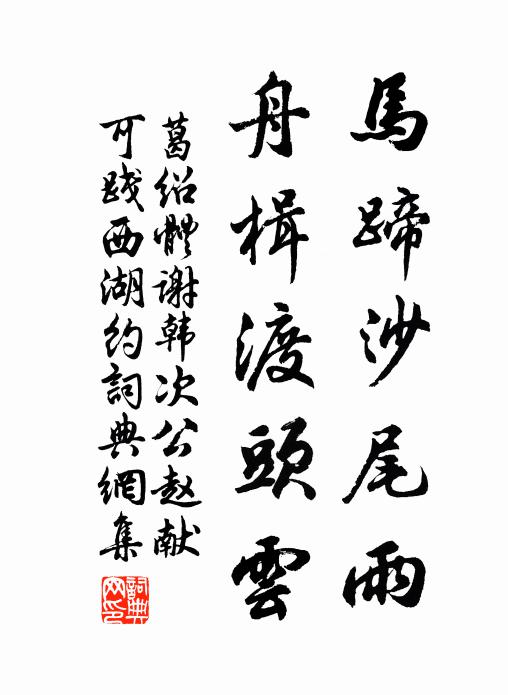 馬蹄沙尾雨
舟楫渡頭雲
葛绍體谢韩次公赵献
可践西湖约詞典網集
詞典網印